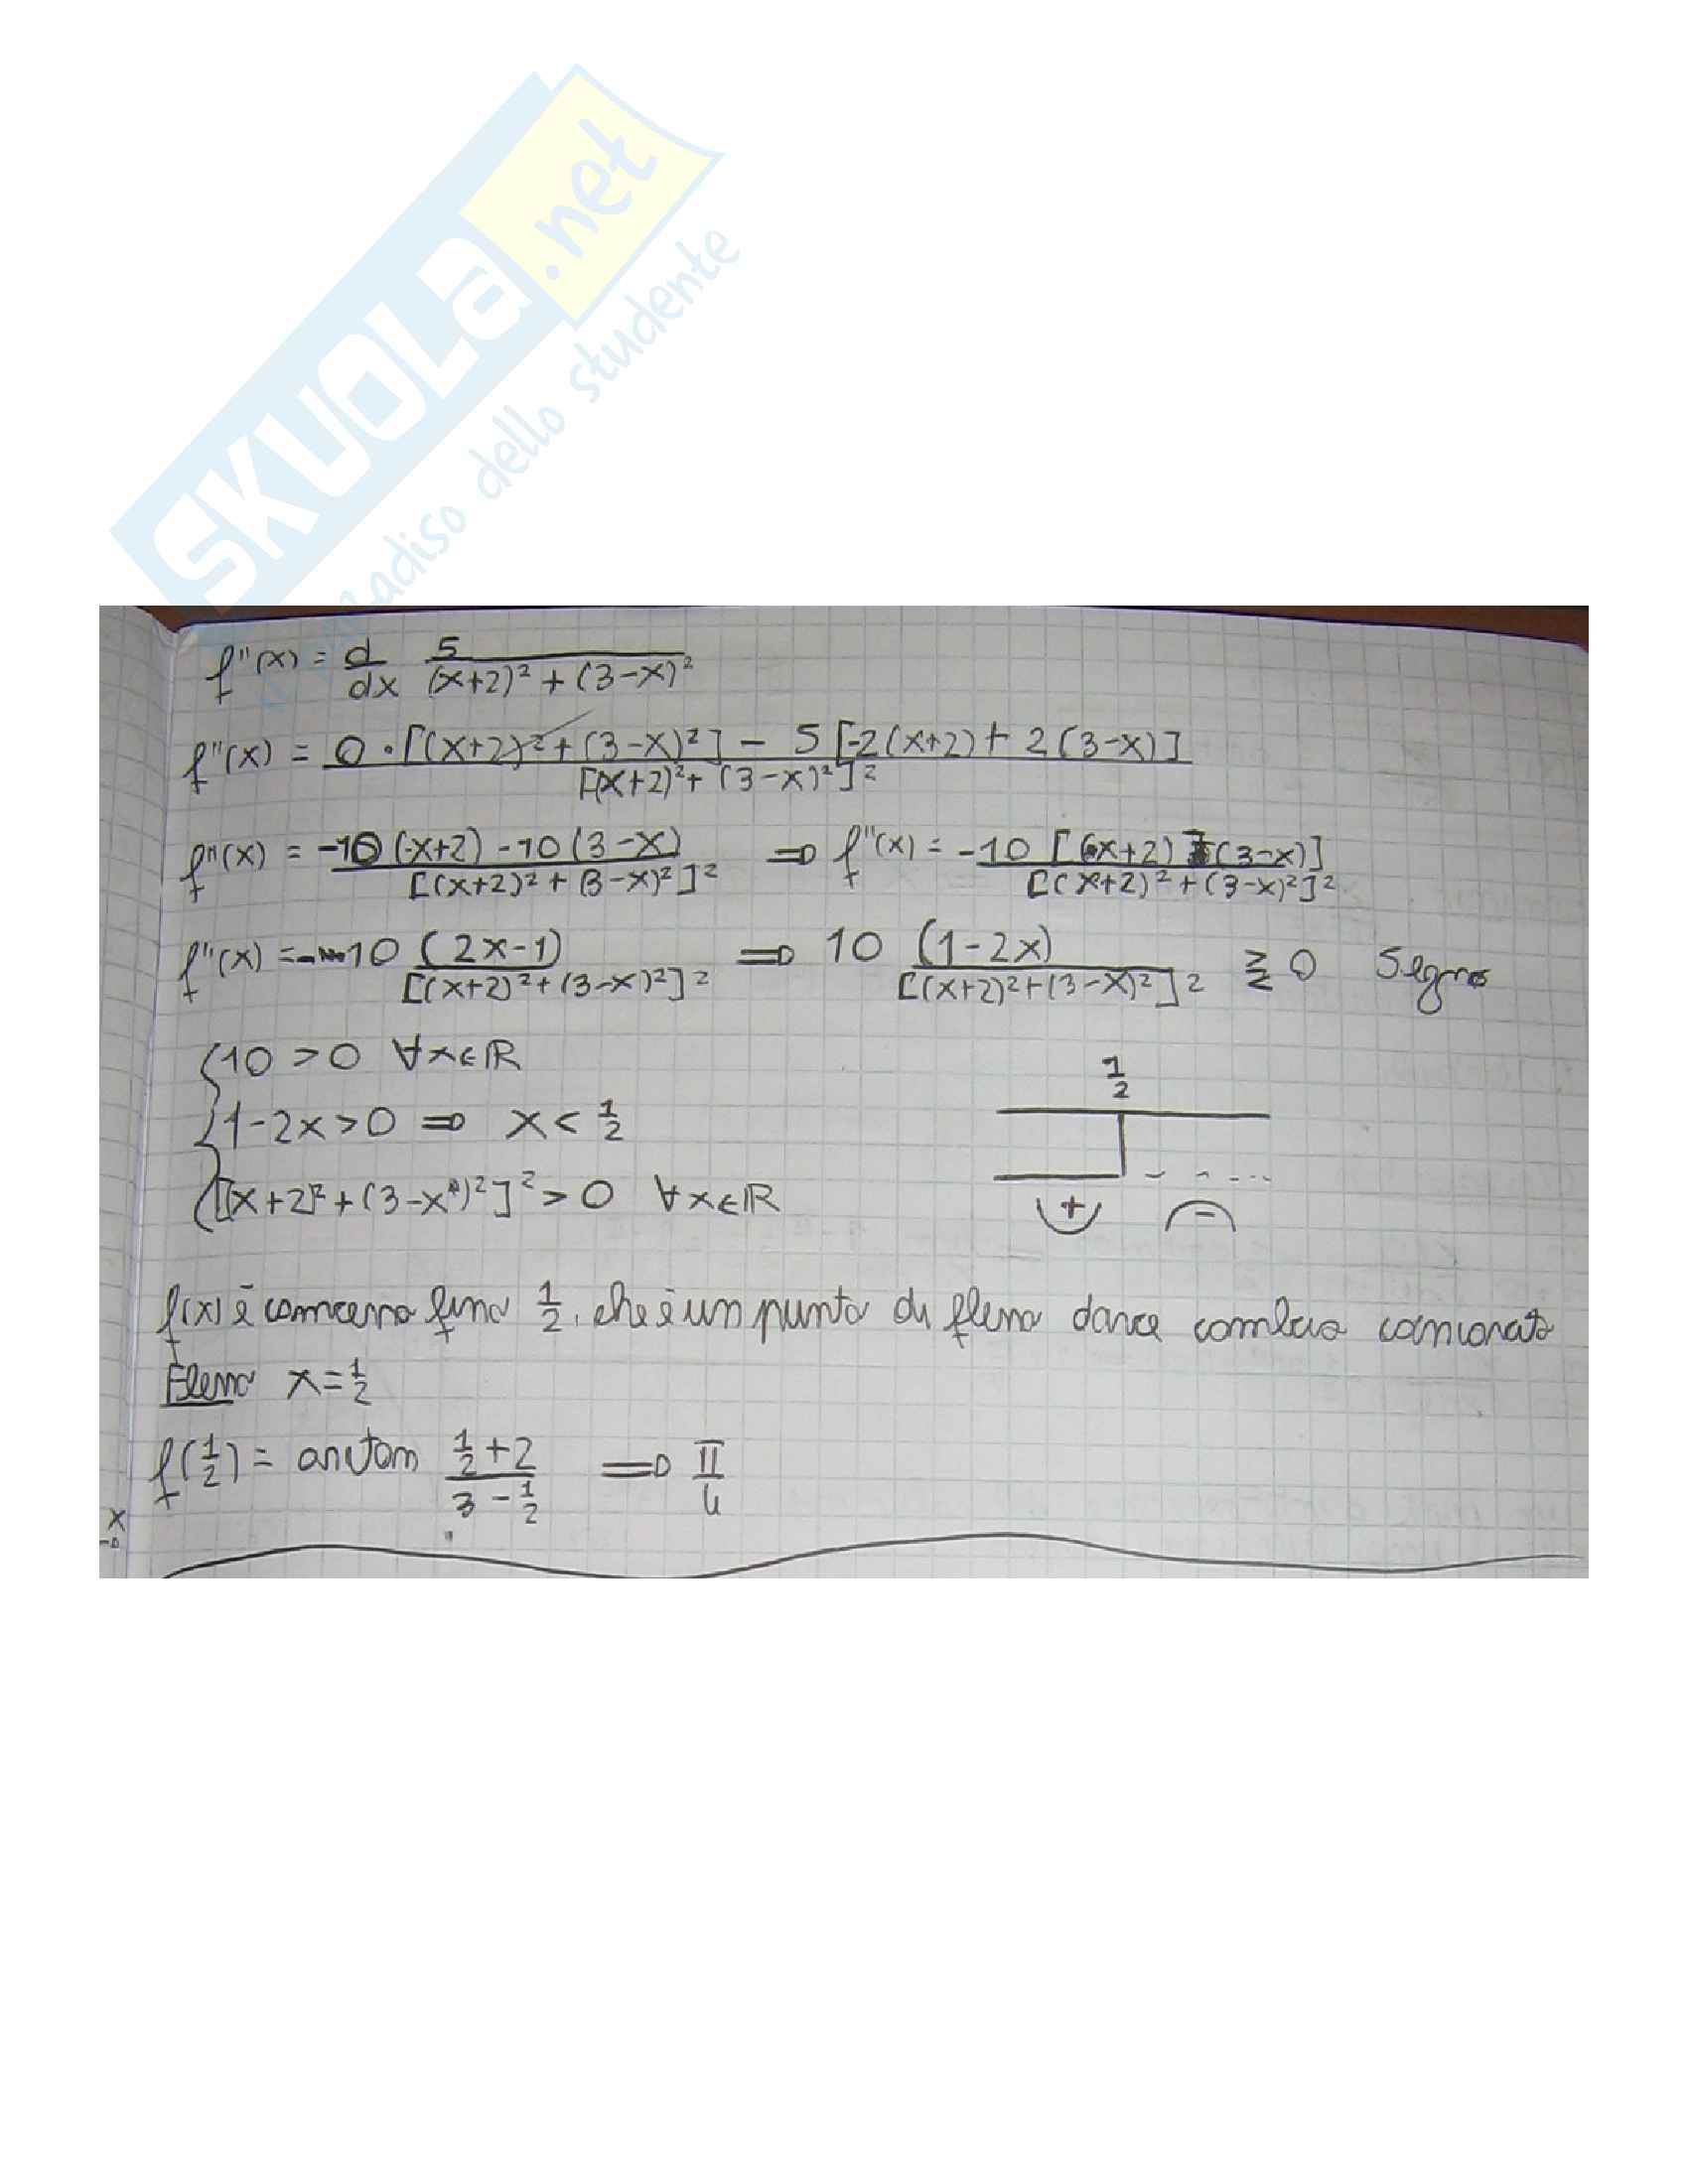 SKUOLa.net
adiso dello studente
f"(x) = d/dx 5/((x+2)² + (3-x)²)
f"(x) = (0·[(x+2)² + (3-x)²] - 5[-2(x+2) + 2(3-x)])/[(x+2)² + (3-x)²]²
f"(x) = (-10(x+2) -10(3-x))/[(x+2)² + (3-x)²]² ⇒ f"(x) = -10 [(x+2) - (3-x)]/[(x+2)² + (3-x)²]²
f"(x) = -10 (2x-1)/[(x+2)² + (3-x)²]² ⇒ 10 (1-2x)/[(x+2)² + (3-x)²]² ⋛ 0 Segno
10 > 0 ∀x∈ℝ
1/2
1-2x > 0 ⇒ x < 1/2
[x+2)² + (3-x)²]² > 0 ∀x∈ℝ
+ -
f(x) è concava fino 1/2, che è un punto di flesso dove cambia concavità
Flesso x = 1/2
f(1/2) = arctan (1/2 + 2)/(3 - 1/2) ⇒ π/4
x